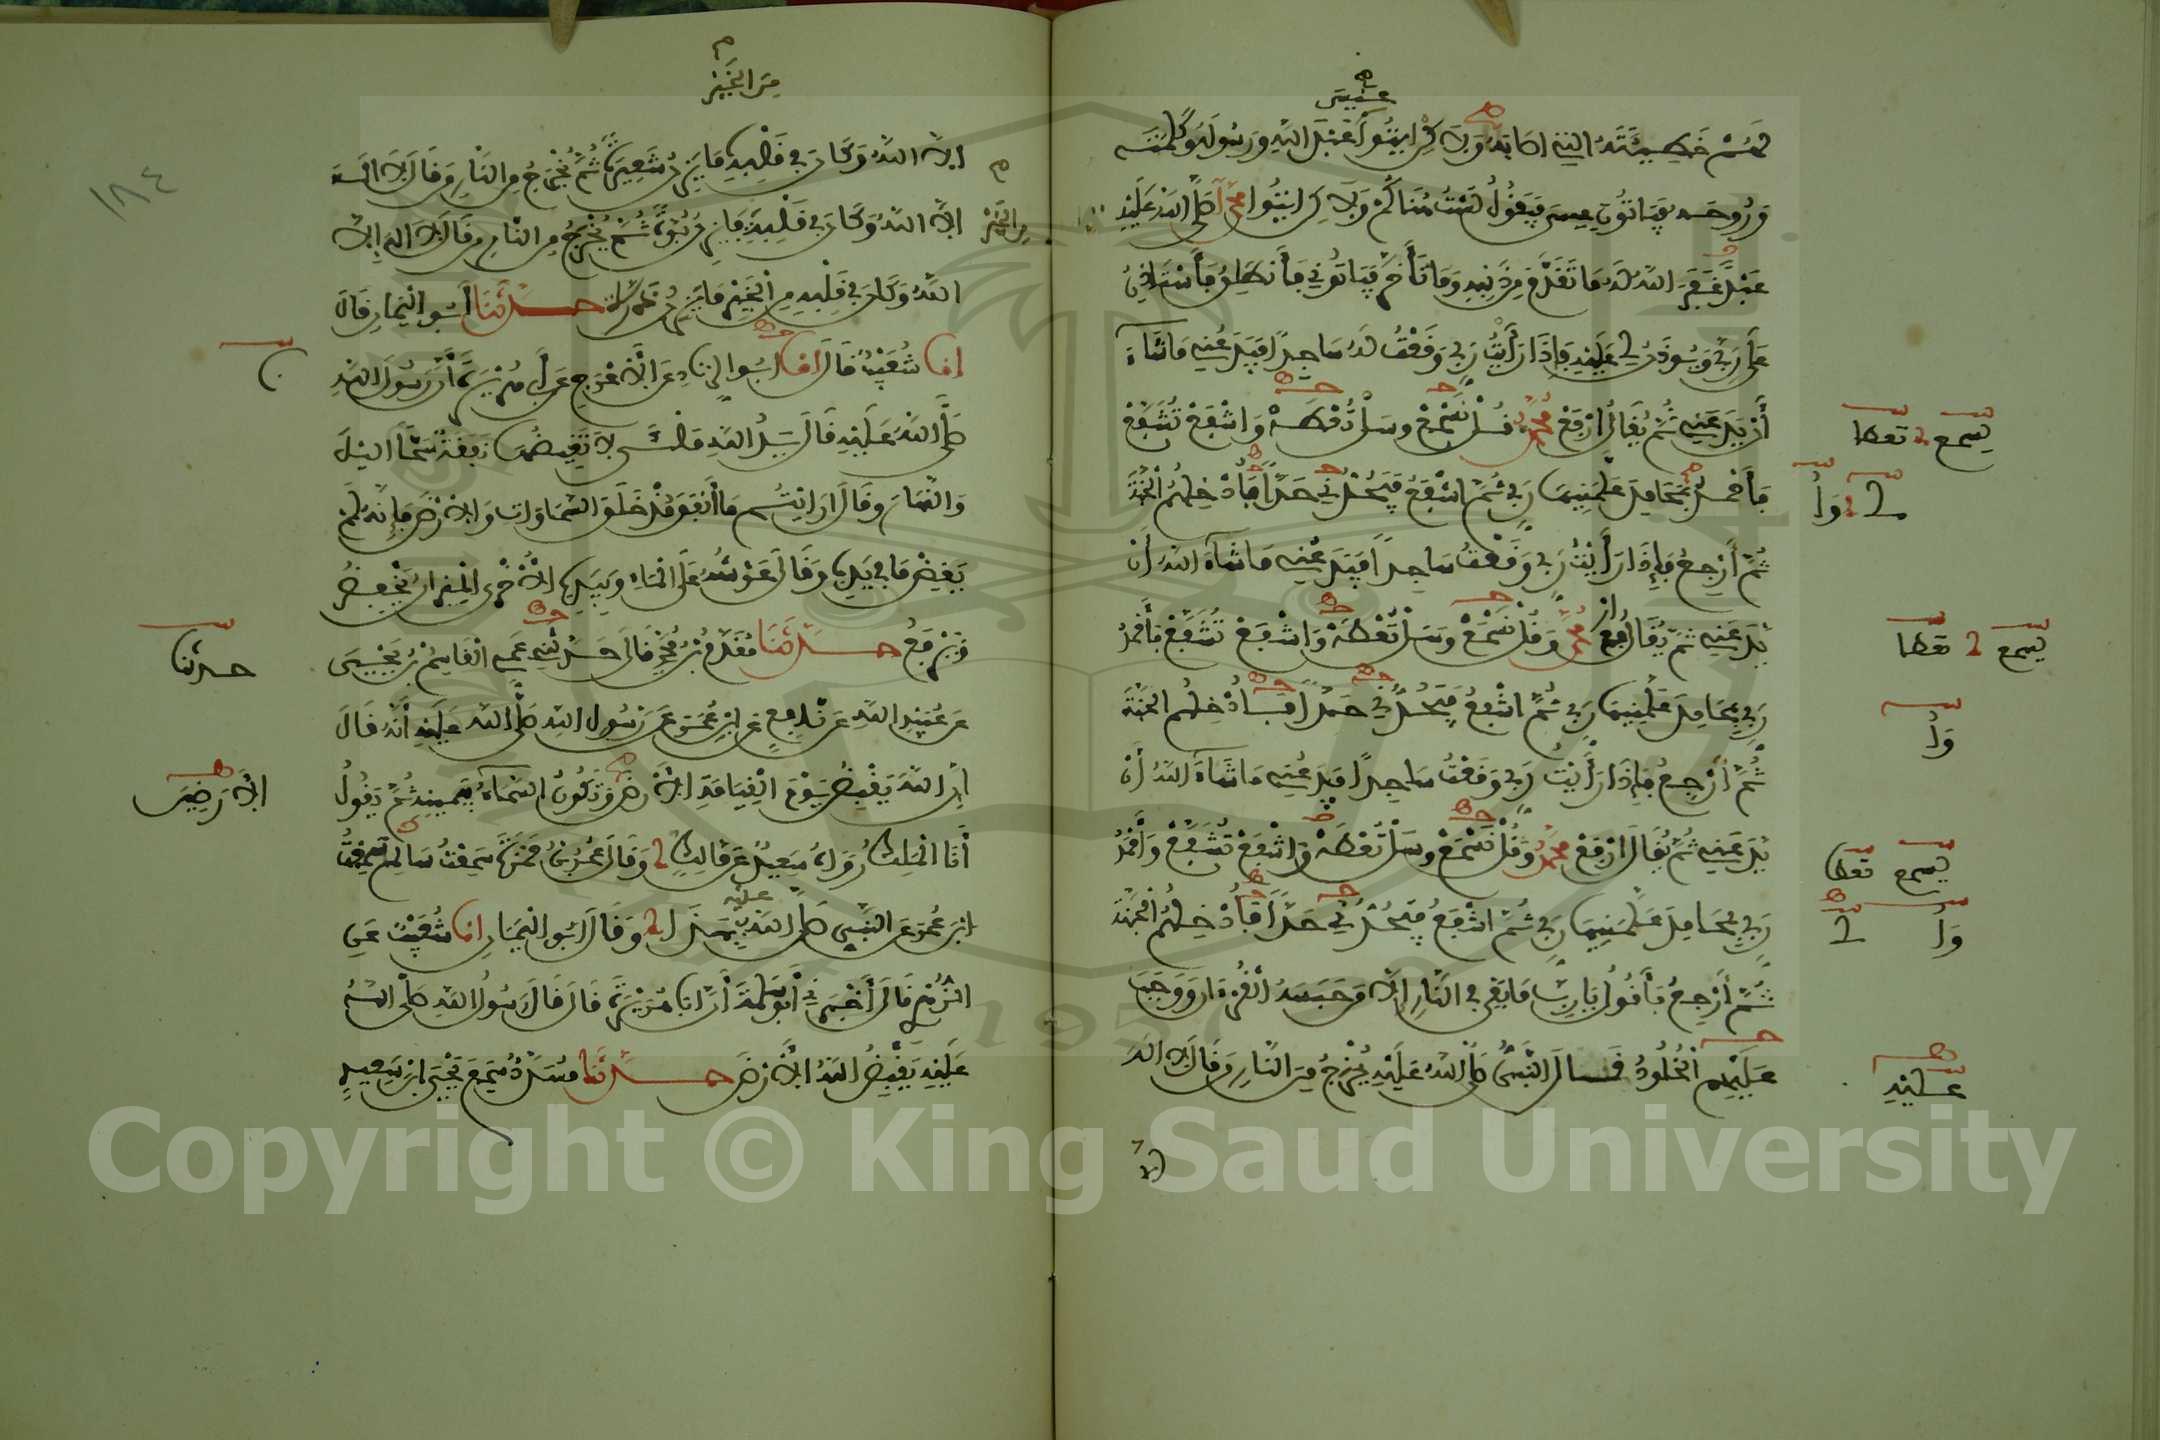 عيسى
لهم خطيئته التي اصابها ولاكن ايتوا عيسى عبد الله ورسوله وكلمته
وروحه فياتون عيسى فيقول لست هناكم ولاكن ايتوا محمدا صلى الله عليه
عبدا غفر الله له ما تقدم من ذنبه وما تأخر فياتوني فأنطلق فأستاذن
على ربي ويوذن لي عليه فإذا رأيت ربي وقعت له ساجدا فيدعني ما شاء
أن يدعني ثم يقال ارفع محمد قل تسمع وسل تعطه واشفع تشفع
يسمع تعط
فأحمد ربي بمحامد علمنيها ربي ثم اشفع فيحد لي حدا فأدخلهم الجنة
ثم أرجع فإذا رأيت ربي وقعت ساجدا فيدعني ما شاء الله أن
يدعني ثم يقال ارفع محمد وقل تسمع وسل تعطه واشفع تشفع فأحمد
يسمع تعط
ربي بمحامد علمنيها ربي ثم اشفع فيحد لي حدا فأدخلهم الجنة
ثم أرجع فإذا رأيت ربي وقعت ساجدا فيدعني ما شاء الله أن
يدعني ثم يقال ارفع محمد وقل تسمع وسل تعطه واشفع تشفع وأحمد
يسمع تعط
ربي بمحامد علمنيها ربي ثم اشفع فيحد لي حدا فأدخلهم الجنة
ثم أرجع فأقول يا رب ما بقي في النار إلا من حبسه القرءان ووجب
عليهم الخلود قال النبي صلى الله عليه يخرج من النار من قال لا اله
عليه
من الخير
الا الله وكان في قلبه ما يزن شعيرة ثم يخرج من النار من قال لا اله
الا الله وكان في قلبه ما يزن برة ثم يخرج من النار من قال لا اله الا
من الخير
الله وكان في قلبه من الخير ما يزن ذرة حدثنا أبو اليمان قال
انا شعيب قال انا ابو الزناد عن الأعرج عن أبي هريرة أن رسول الله
صلى الله عليه قال يد الله ملأى لا تغيضها نفقة سحاء الليل
والنهار وقال ارايتم ما أنفق منذ خلق السماوات والارض فإنه لم
يغض ما في يده وقال عرشه على الماء وبيده الأخرى الميزان يخفض
ويرفع حدثنا مقدم بن محمد قال حدثني عمي القاسم بن يحيى
حدثنا
عن عبيد الله عن نافع عن ابن عمر عن رسول الله صلى الله عليه أنه قال
إن الله يقبض يوم القيامة الأرض وتكون السماء بيمينه ثم يقول
الأرضين
أنا الملك رواه سعيد عن مالك وقال عمر بن حمزة سمعت سالم سمعت
ابن عمر عن النبي صلى الله عليه بهذا وقال ابو اليمان انا شعيب عن
الزهري قال أخبرني أبو سلمة أن ابا هريرة قال قال رسول الله صلى الله
عليه يقبض الله الأرض حدثنا مسدد سمع يحيى بن سعيد
١٨٤
Copyright © King Saud University
1957